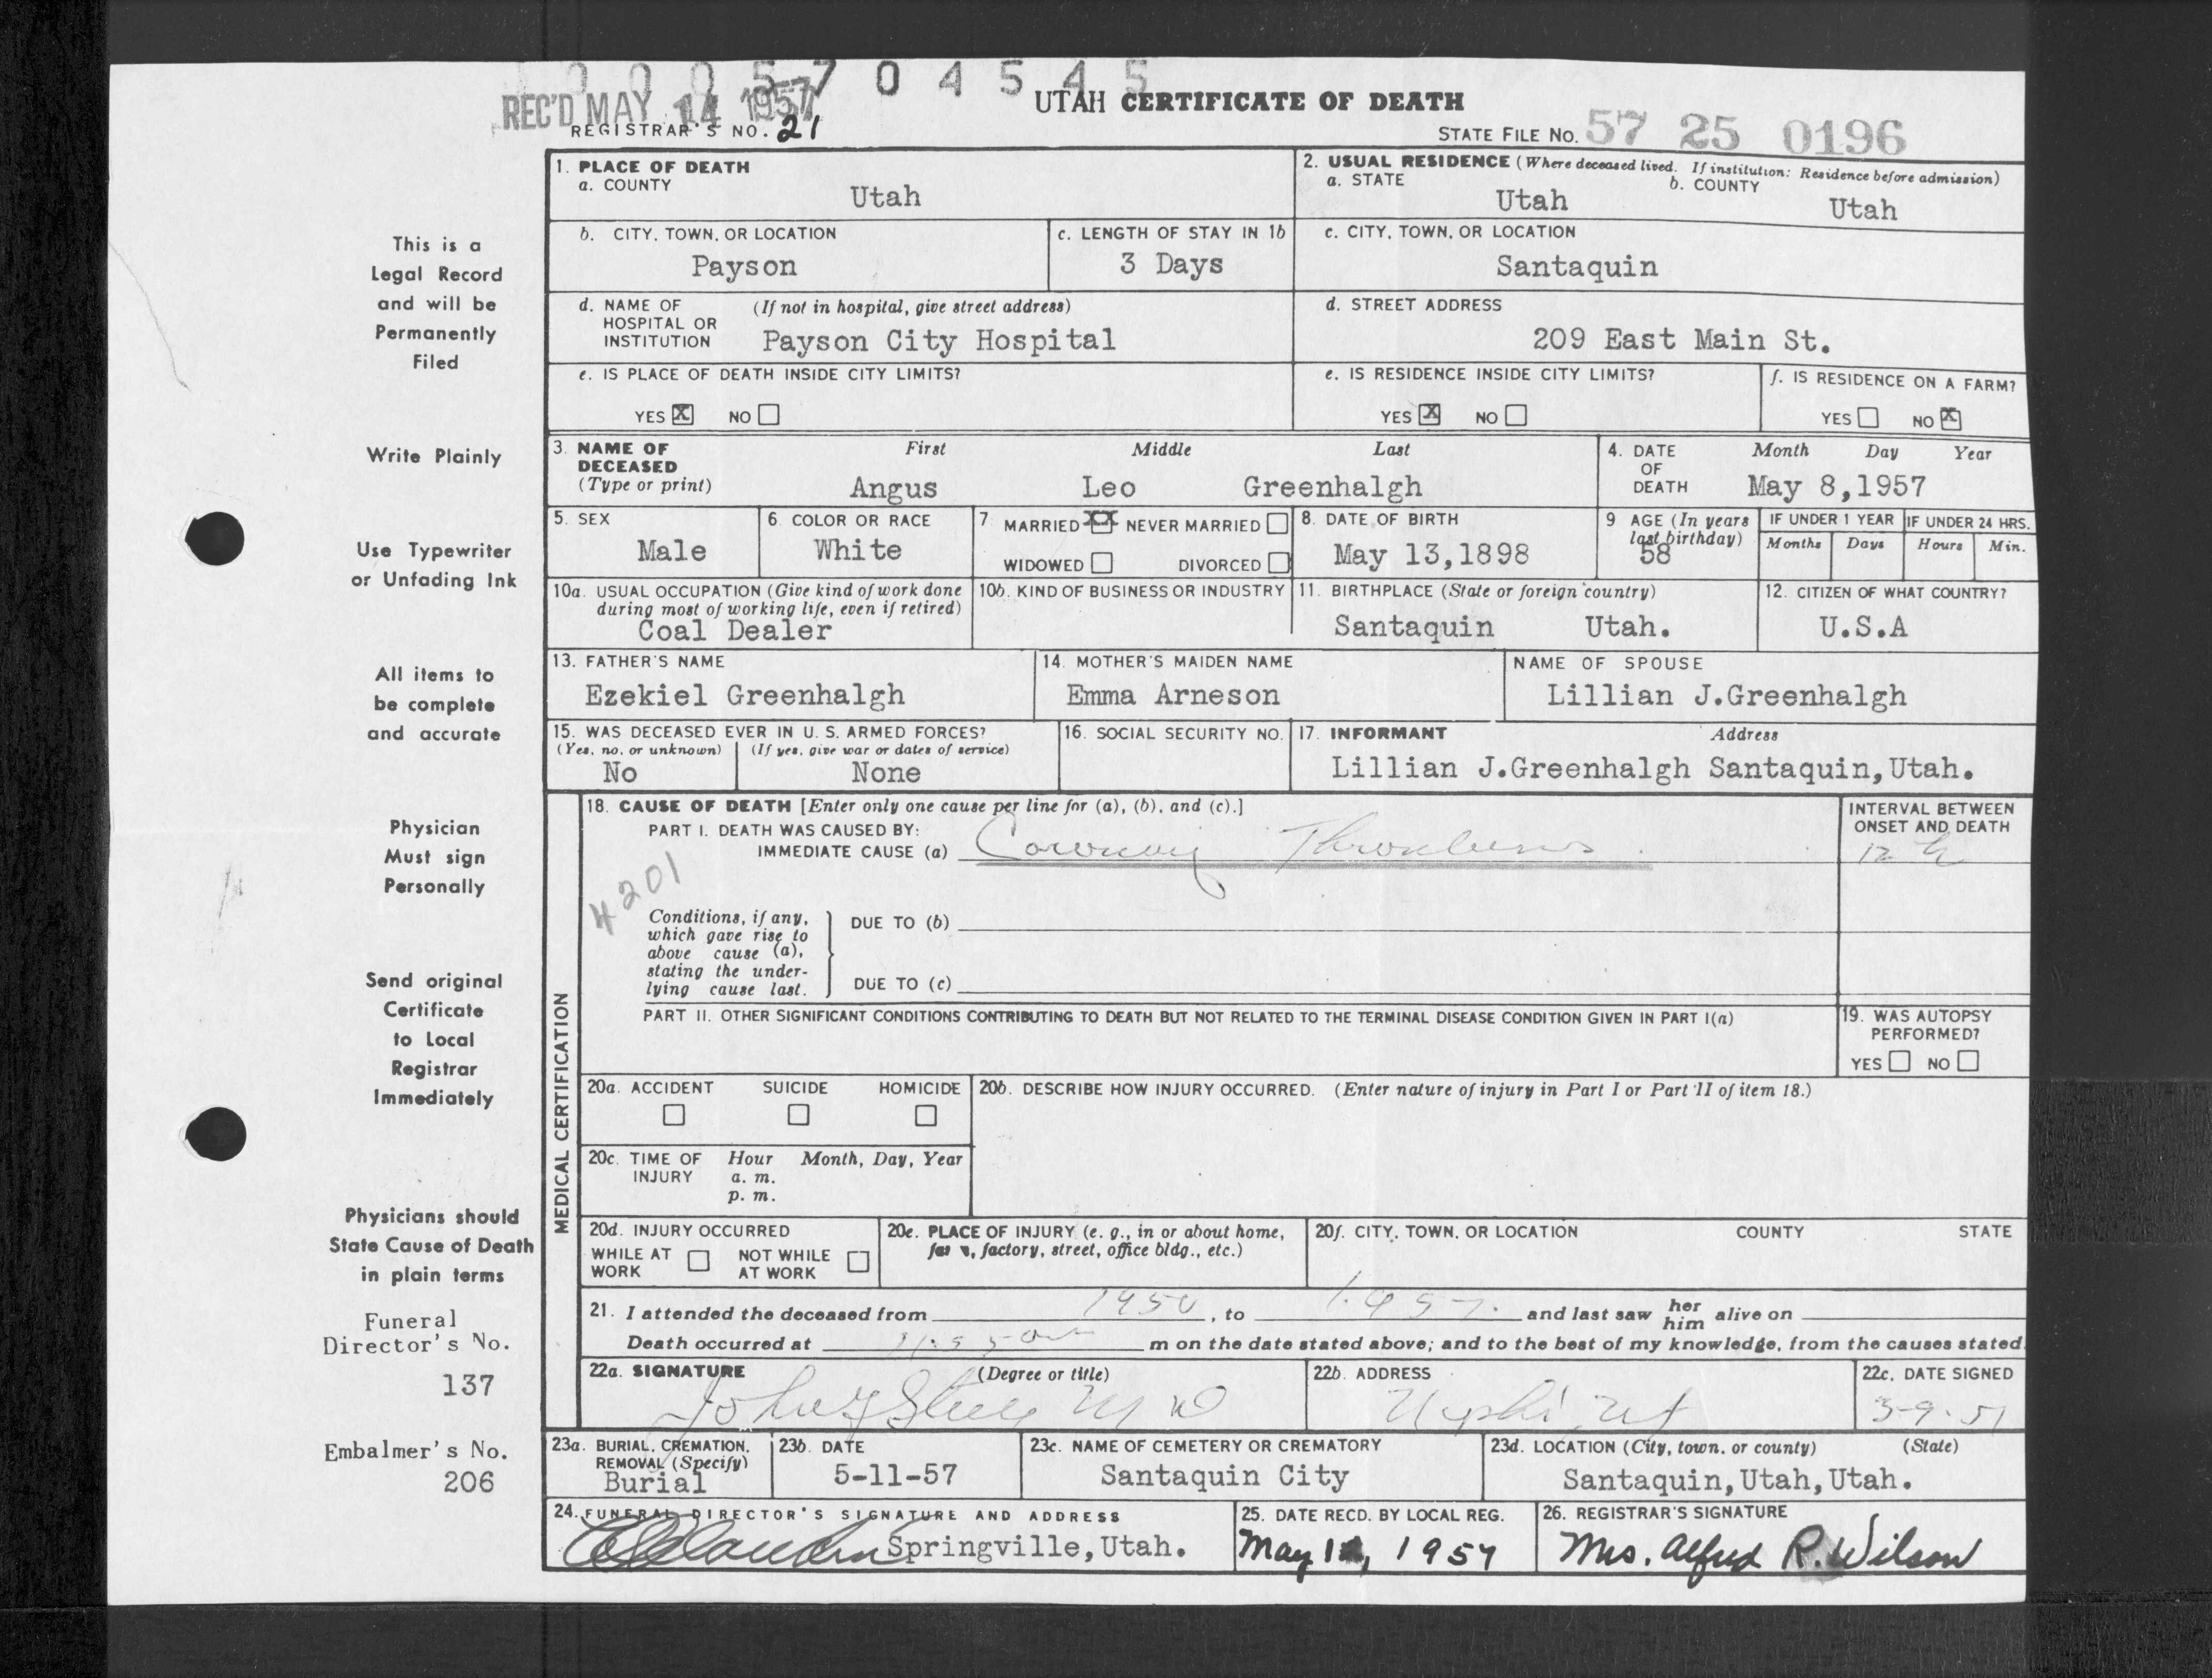 0 0 0 5 7 0 4 5 4 5
REC'D MAY 14 1957
UTAH CERTIFICATE OF DEATH
REGISTRAR'S NO. 21
STATE FILE NO. 57 25 0196
1. PLACE OF DEATH
a. COUNTY
Utah
2. USUAL RESIDENCE (Where deceased lived. If institution: Residence before admission)
a. STATE
Utah
b. COUNTY
Utah
b. CITY, TOWN, OR LOCATION
Payson
c. LENGTH OF STAY IN 1b
3 Days
c. CITY, TOWN, OR LOCATION
Santaquin
d. NAME OF HOSPITAL OR INSTITUTION
(If not in hospital, give street address)
Payson City Hospital
d. STREET ADDRESS
209 East Main St.
e. IS PLACE OF DEATH INSIDE CITY LIMITS?
YES X NO
e. IS RESIDENCE INSIDE CITY LIMITS?
YES X NO
f. IS RESIDENCE ON A FARM?
YES NO X
3. NAME OF DECEASED
(Type or print)
First Middle Last
Angus Leo Greenhalgh
4. DATE OF DEATH
Month Day Year
May 8,1957
5. SEX
Male
6. COLOR OR RACE
White
7. MARRIED XX NEVER MARRIED
WIDOWED DIVORCED
8. DATE OF BIRTH
May 13,1898
9 AGE (In years last birthday)
58
IF UNDER 1 YEAR
Months Days
IF UNDER 24 HRS.
Hours Min.
10a. USUAL OCCUPATION (Give kind of work done during most of working life, even if retired)
Coal Dealer
10b. KIND OF BUSINESS OR INDUSTRY
11. BIRTHPLACE (State or foreign country)
Santaquin Utah.
12. CITIZEN OF WHAT COUNTRY?
U.S.A
13. FATHER'S NAME
Ezekiel Greenhalgh
14. MOTHER'S MAIDEN NAME
Emma Arneson
NAME OF SPOUSE
Lillian J.Greenhalgh
15. WAS DECEASED EVER IN U. S. ARMED FORCES?
(Yes, no, or unknown) (If yes, give war or dates of service)
No None
16. SOCIAL SECURITY NO.
17. INFORMANT Address
Lillian J.Greenhalgh Santaquin,Utah.
MEDICAL CERTIFICATION
18. CAUSE OF DEATH [Enter only one cause per line for (a), (b), and (c).]
PART I. DEATH WAS CAUSED BY:
IMMEDIATE CAUSE (a) Coronary Thrombosis
INTERVAL BETWEEN ONSET AND DEATH
12 h
4201
Conditions, if any, which gave rise to above cause (a), stating the underlying cause last.
DUE TO (b)
DUE TO (c)
PART II. OTHER SIGNIFICANT CONDITIONS CONTRIBUTING TO DEATH BUT NOT RELATED TO THE TERMINAL DISEASE CONDITION GIVEN IN PART I(a)
19. WAS AUTOPSY PERFORMED?
YES NO
20a. ACCIDENT SUICIDE HOMICIDE
20b. DESCRIBE HOW INJURY OCCURRED. (Enter nature of injury in Part I or Part II of item 18.)
20c. TIME OF INJURY
Hour Month, Day, Year
a. m.
p. m.
20d. INJURY OCCURRED
WHILE AT WORK NOT WHILE AT WORK
20e. PLACE OF INJURY (e. g., in or about home, farm, factory, street, office bldg., etc.)
20f. CITY, TOWN, OR LOCATION COUNTY STATE
21. I attended the deceased from 1950, to 1957. and last saw her him alive on
Death occurred at m on the date stated above; and to the best of my knowledge, from the causes stated
22a. SIGNATURE (Degree or title)
M D
22b. ADDRESS
Nephi, Ut
22c. DATE SIGNED
23a. BURIAL, CREMATION, REMOVAL (Specify)
Burial
23b. DATE
5-11-57
23c. NAME OF CEMETERY OR CREMATORY
Santaquin City
23d. LOCATION (City, town, or county) (State)
Santaquin,Utah,Utah.
24. FUNERAL DIRECTOR'S SIGNATURE AND ADDRESS
Springville,Utah.
25. DATE RECD. BY LOCAL REG.
May 1 , 1957
26. REGISTRAR'S SIGNATURE
Mrs. Alfred R. Wilson
This is a
Legal Record
and will be
Permanently
Filed
Write Plainly
Use Typewriter
or Unfading Ink
All items to
be complete
and accurate
Physician
Must sign
Personally
Send original
Certificate
to Local
Registrar
Immediately
Physicians should
State Cause of Death
in plain terms
Funeral
Director's No.
137
Embalmer's No.
206